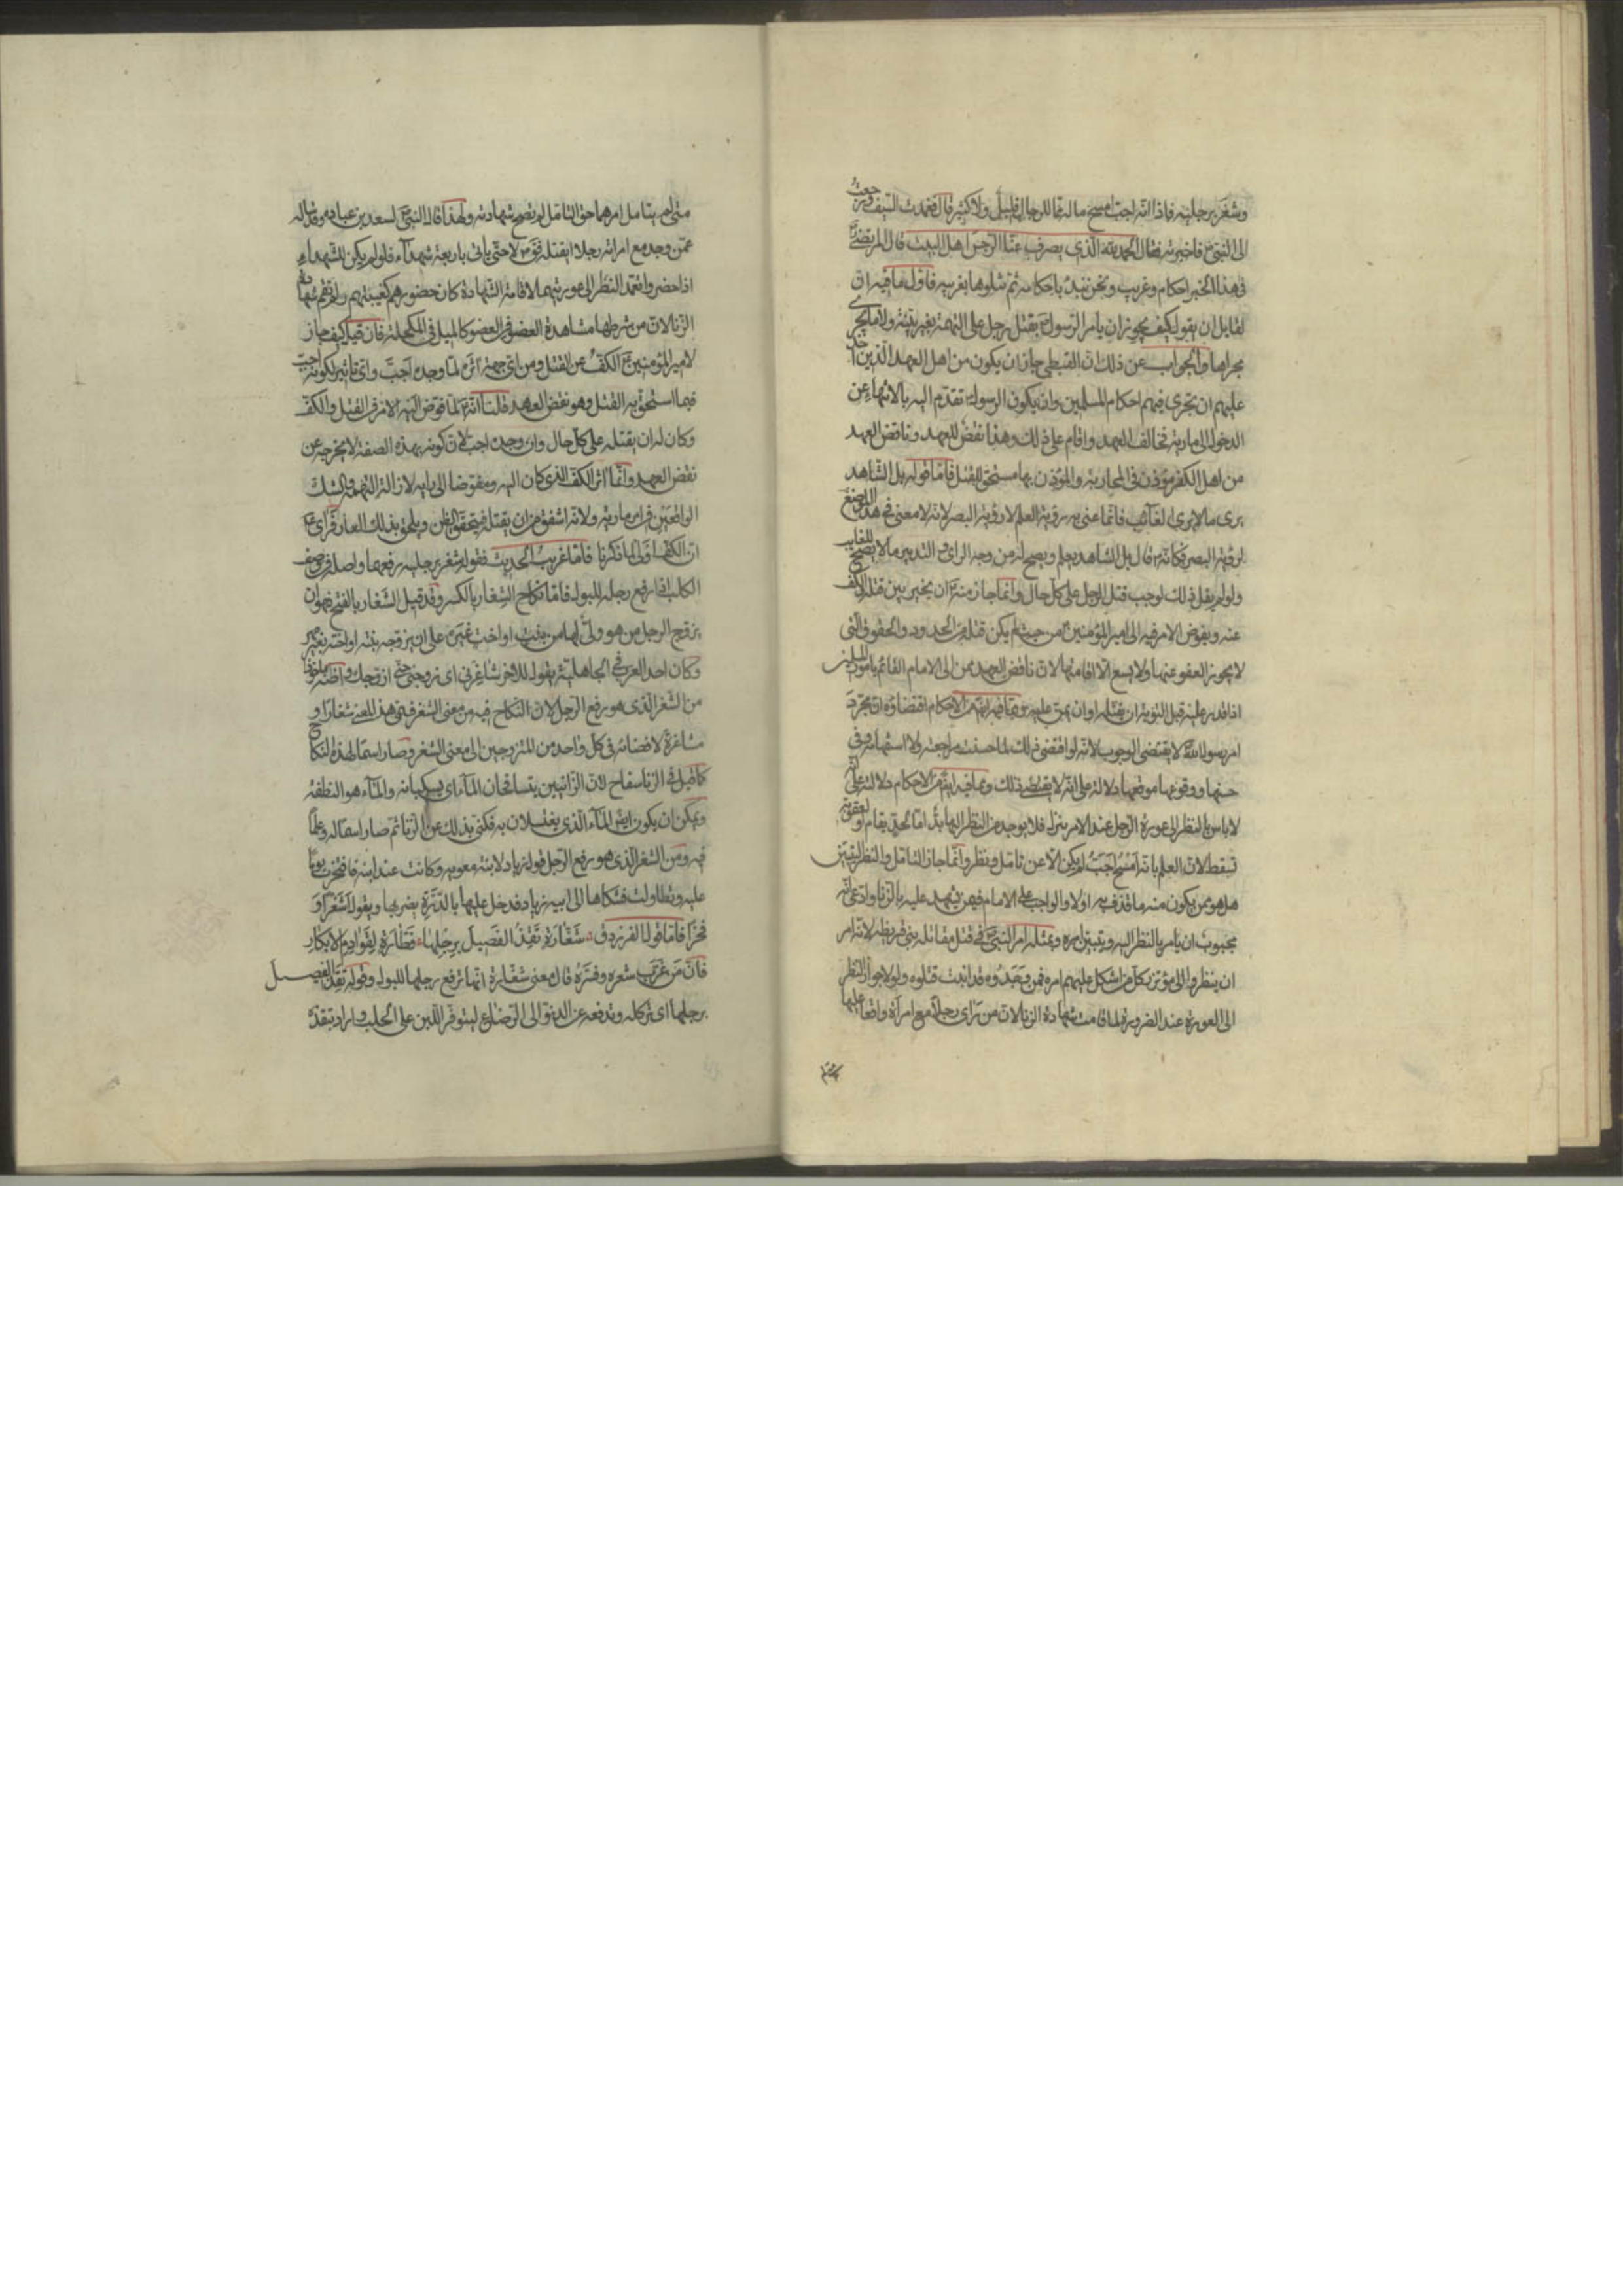 وشغر برجليه فاذا انه اجب امسح ماله مما للرجال قليل ولا كثير قال فغمدت السيف ورجعت
الى النبي ص فاخبرته فقال الحمد لله الذي يصرف عنا الرجس اهل البيت قال المرتضى
في هذا الخبر احكام وغريب ونحن نبدء باحكامه ثم نتلوها بغريبه فاول ما فيه ان
لقايل ان يقول كيف يجوز ان يامر الرسول ع بقتل رجل على التهمة بغير بينة ولا ما يجري
مجراها والجواب عن ذلك ان القبطي جاز ان يكون من اهل العهد الذين اخذ
عليهم ان تجري فيهم احكام المسلمين وان يكون الرسول ع تقدم اليه بالانتهاء عن
الدخول الى مارية فخالف العهد واقام على ذلك وهذا نقض للعهد وناقض العهد
من اهل الكفر مؤذن في المحاربة والمؤذن بها مستحق للقتل فاما قوله بل الشاهد
يرى ما لا يرى الغائب فانما عنى به رؤية العلم لا رؤية البصر لانه لا معنى في هذا الموضع
لرؤية البصر فكانه ص قال بل الشاهد يعلم ويصح له من وجه الراي والتدبير ما لا يصح للغايب
ولو لم يقل ذلك لوجب قتل الرجل على كل حال وانما جاز منه ع ان يخير بين قتله والكف
عنه ويفوض الامر فيه الى امير المؤمنين ع من حيث لم يكن قتله من الحدود والحقوق التي
لا يجوز العفو عنها ولا يسع الا اقامتها لان ناقض العهد ممن الى الامام القائم بامور المسلمين
اذا قدر عليه قبل التوبة ان يقتله او ان يمن عليه ومما فيه ايضا من الاحكام اقتضاؤه ان مجرد
امر رسول الله لا يقتضي الوجوب لانه لو اقتضى ذلك لما حسنت مراجعته ولا استفهامه وفي
حسنها ووقوعها موقعها دلالة على انه لا يقتضي ذلك ومما فيه ايضا من الاحكام دلالته على انه
لا باس بالنظر الى عورة الرجل عند الامر ينزل فلا يوجد من النظر اليها بد اما لحد يقام او لعقوبة
تسقط لان العلم بانه امسح اجب لم يكن الا عن تامل ونظر وانما جاز التامل والنظر ليتبين
هل هو ممن يكون منه ما قذف به او لا والواجب على الامام فيمن شهد عليه بالزنا وادعى انه
مجبوب ان يامر بالنظر اليه ويتبين امره ومثله امر النبي ص في قتل مقاتلة بني قريظة لانه امر
ان ينظروا الى مؤتزر كل من اشكل عليهم امره فمن وجدوه قد انبت قتلوه ولولا جواز النظر
الى العورة عند الضرورة لما قامت شهادة الزنا لان من راى رجلا مع امراة واقعا عليها
متى لم يتامل امرهما حق التامل لم تصح شهادته ولهذا قال النبي ص لسعد بن عبادة وقد ساله
عمن وجد مع امراته رجلا ايقتله فق ص لا حتى ياتي باربعة شهداء فلو لم يكن للشهداء
اذا حضروا تعمد النظر الى عورتيهما لاقامة الشهادة كان حضورهم كغيبتهم ولم تقم شهادة
الزنا لان من شرطها مشاهدة العضو في العضو كالميل في المكحلة فان قيل كيف جاز
لامير المؤمنين ع الكف عن القتل ومن اي جهة اثره لما وجده اجب واي تاثير لكونه اجب
فيما استحق به القتل وهو نقض العهد قلنا انه ع لما فوض اليه الامر في القتل والكف
وكان له ان يقتله على كل حال وان وجده اجب لان كونه بهذه الصفة لا يخرجه عن
نقض العهد وانما اثر الكف الذي كان اليه ومفوضا الى رايه لازالة التهمة والشك
الواقعين في امر مارية ولانه اشفق من ان يقتله فيتحقق الظن ويلحق بذلك العار فراى ع
ان الكف اولى لما ذكرنا فاما غريب الحديث فقوله شغر برجليه يريد رفعهما واصله في وصف
الكلب اذا رفع رجله للبول فاما نكاح الشغار بالكسر وقد قيل الشغار بالفتح فهو ان
يزوج الرجل من هو ولي لها من بنت او اخت غيره على ان يزوجه بنته او اخته بغير مهر
وكان احد العرب في الجاهلية يقول للاخر شاغرني اي زوجني حتى ازوجك واظنه ماخوذا
من الشغر الذي هو رفع الرجل لان النكاح فيه من معنى الشغر فسمي هذا المعنى شغارا و
مشاغرة لافضائه في كل واحد من المتزوجين الى معنى الشغر وصار اسما لهذه النكاح
كما قيل في الزنا سفاح لان الزانيين يتسافحان الماء اي يسكبانه والماء هو النطفة
ويمكن ان يكون ايضا الماء الذي يغتسلان به فكني بذلك عن الزنا ثم صار اسما له وعلما
فيه ومن الشغر الذي هو رفع الرجل قول زياد لابنة معوية وكانت عند ابنه فافتخرت يوما
عليه وتطاولت فشكاها الى ابيه زياد فدخل عليها بالدرة يضربها ويقول اشغرا و
فخرا فاما قول الفرزدق شغارة تقذ الفصيل برجلها فطارة لقوادم الابكار
فان من غريب شعره وفسره قال معنى شغارة انها ترفع رجلها للبول وقوله تقذ الفصيل
برجلها اي تركله وتدفعه عن الدنو الى الرضاع ليتوفر اللبن على الحلب واراد بتقذه